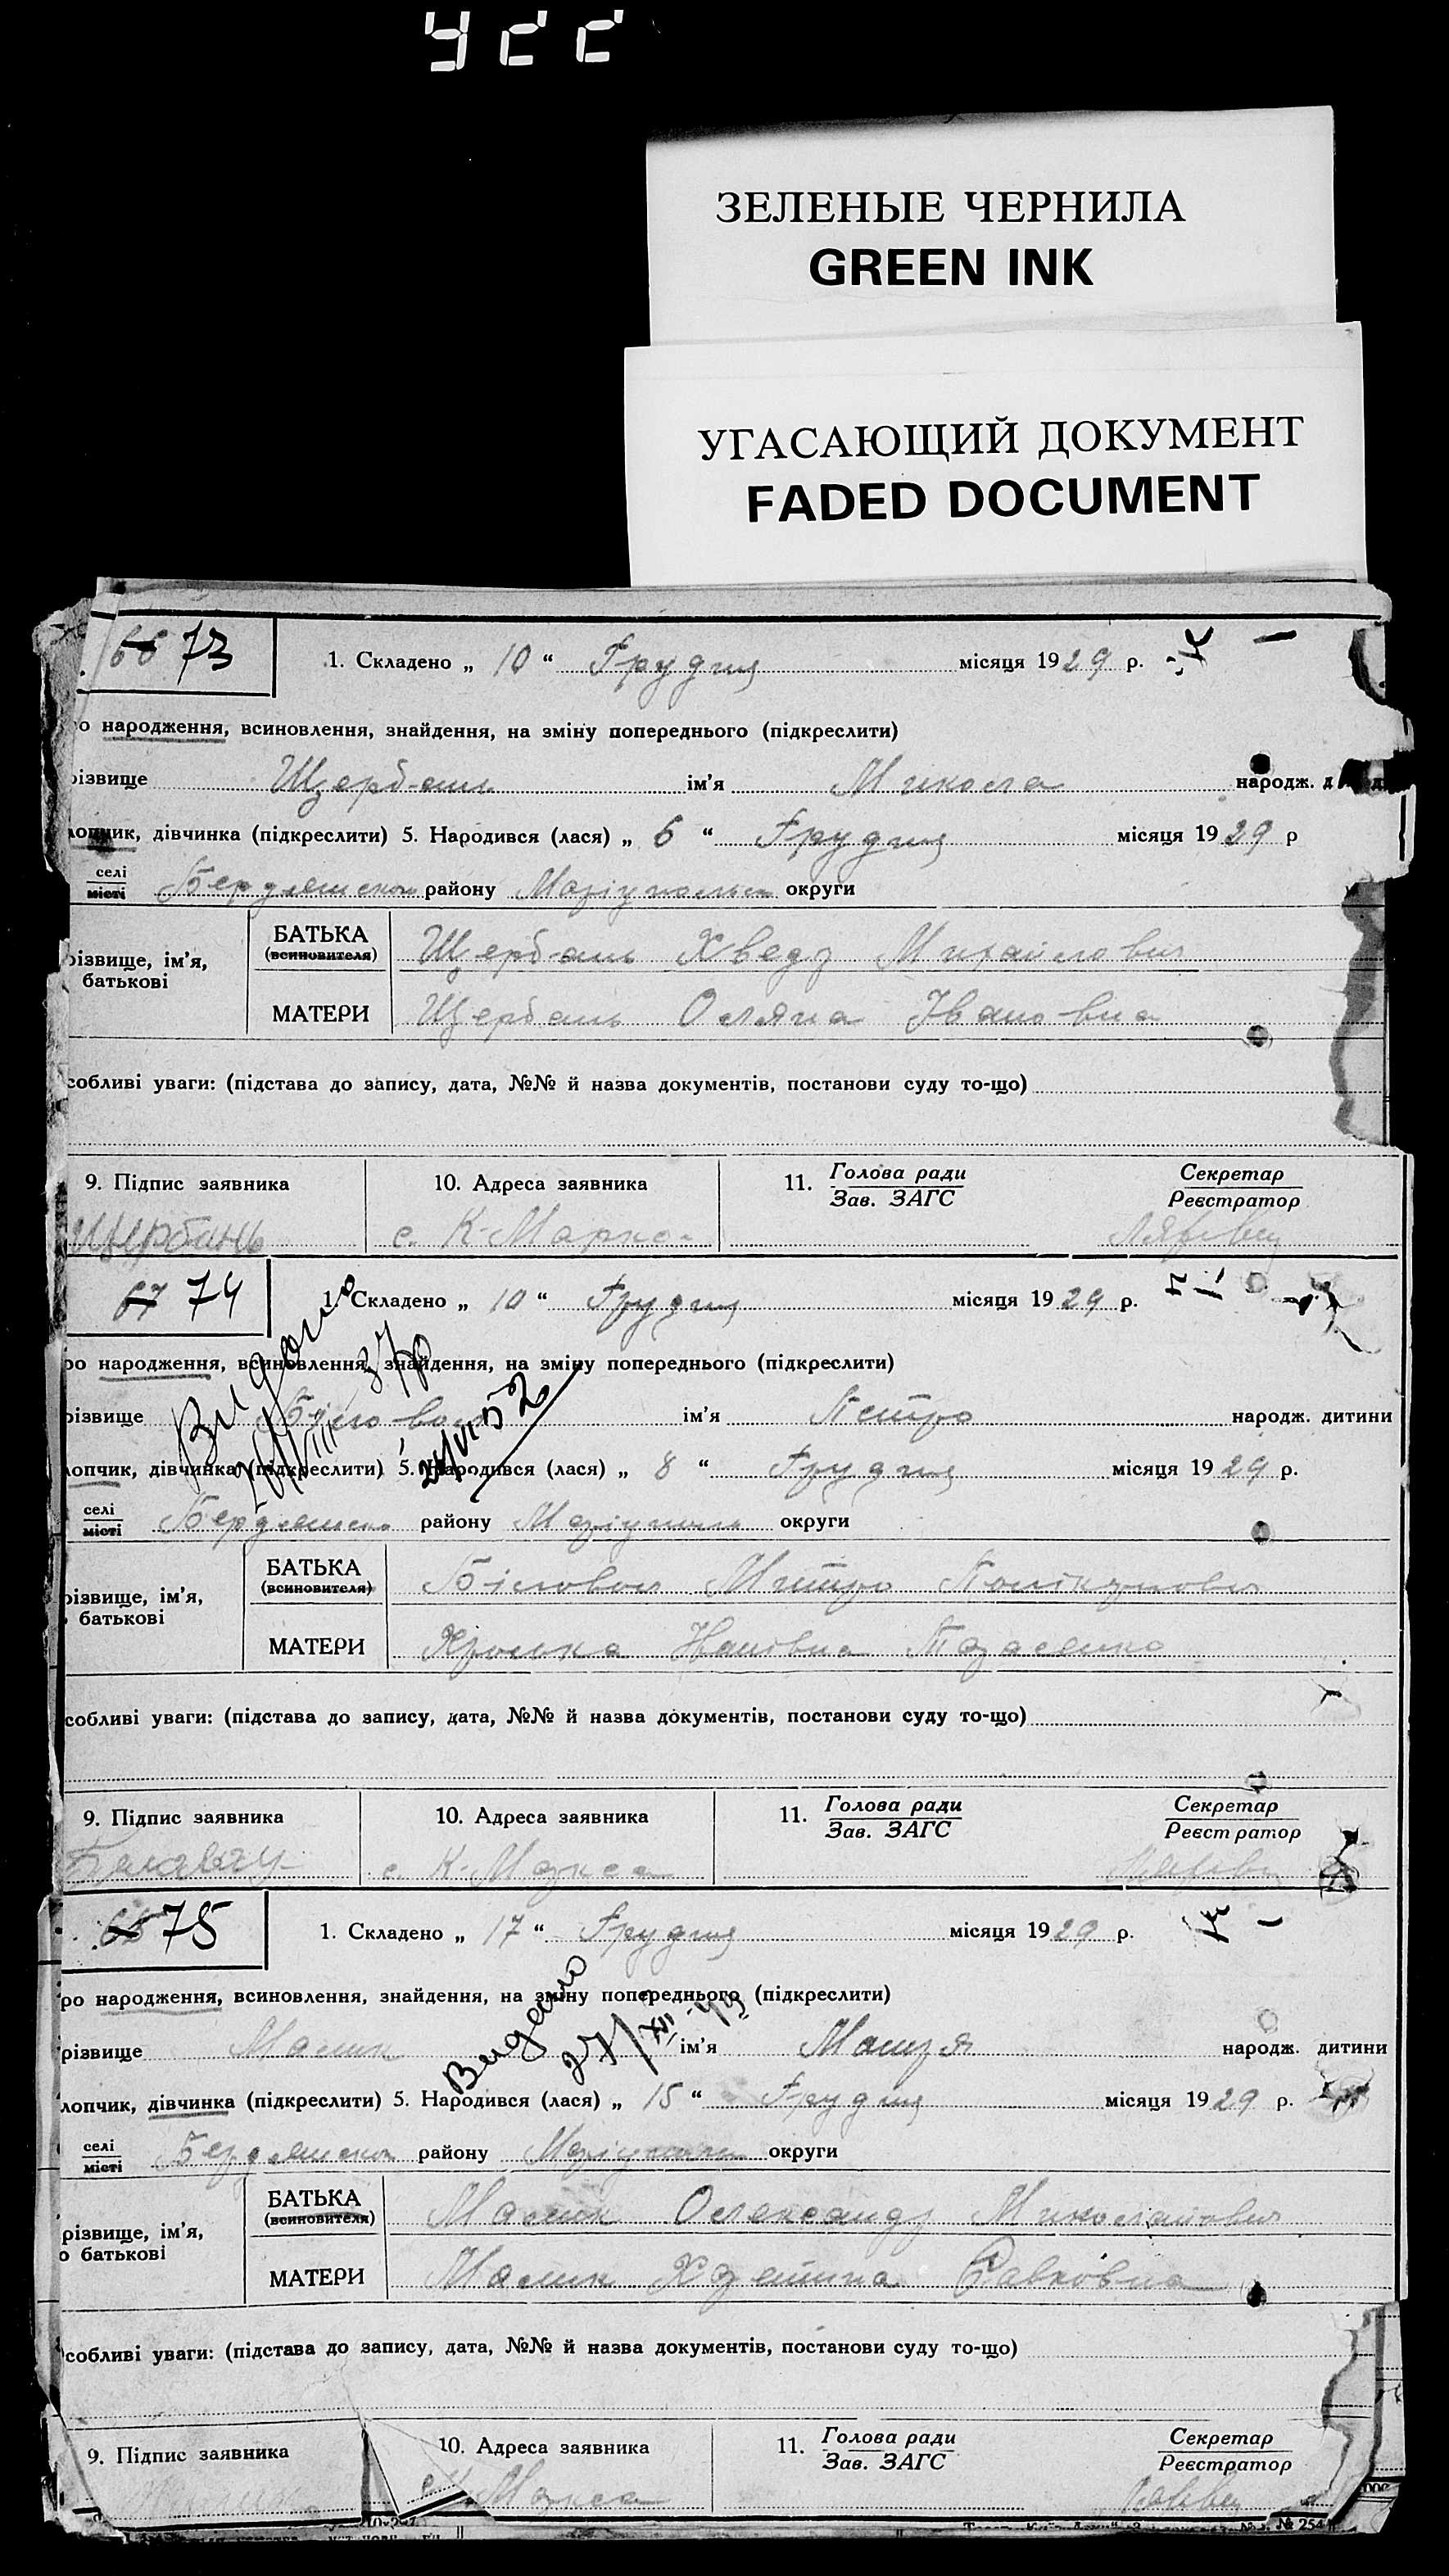 усс
ЗЕЛЕНЫЕ ЧЕРНИЛА
GREEN INK
УГАСАЮЩИЙ ДОКУМЕНТ
FADED DOCUMENT
66 73
1. Складено „ 10 “ Грудня місяця 1929 р.
о народження, всиновлення, знайдення, на зміну попереднього (підкреслити)
різвище Щербань ім'я Микола народж.
лопчик, дівчинка (підкреслити) 5. Народився (лася) „ 6 “ Грудня місяця 1929 р
селі
місті Бердянском району Маріупольск округи
різвище, ім'я, батькові
БАТЬКА (всиновителя) Щербань Хведр Михайлович
МАТЕРИ Щербань Оляна Івановна
собливі уваги: (підстава до запису, дата, №№ й назва документів, постанови суду то-що)
9. Підпис заявника 10. Адреса заявника 11. Голова ради Секретар
Зав. ЗАГС Реєстратор
Щербань с. К-Маркса
67 74
1. Складено „ 10 “ Грудня місяця 1929 р.
ро народження, всиновлення, знайдення, на зміну попереднього (підкреслити)
різвище Біловол ім'я Петро народж. дитини
лопчик, дівчинка (підкреслити) 5. Народився (лася) „ 8 “ Грудня місяця 1929 р.
селі
місті Бердянськ району Маріуполь округи
різвище, ім'я, батькові
БАТЬКА (всиновителя) Біловол Митро
МАТЕРИ Івановна Тараленко
собливі уваги: (підстава до запису, дата, №№ й назва документів, постанови суду то-що)
9. Підпис заявника 10. Адреса заявника 11. Голова ради Секретар
Зав. ЗАГС Реєстратор
с. К-Маркса
68 75
1. Складено „ 17 “ Грудня місяця 1929 р.
ро народження, всиновлення, знайдення, на зміну попереднього (підкреслити)
Видано
різвище Малик ім'я народж. дитини
лопчик, дівчинка (підкреслити) 5. Народився (лася) „ 15 “ Грудня місяця 1929 р.
селі
місті Бердянском району Маріуполь округи
різвище, ім'я, о батькові
БАТЬКА (всиновителя) Малик Олександр Миколайович
МАТЕРИ Малик Харитина Савковна
собливі уваги: (підстава до запису, дата, №№ й назва документів, постанови суду то-що)
9. Підпис заявника 10. Адреса заявника 11. Голова ради Секретар
Зав. ЗАГС Реєстратор
Маркса